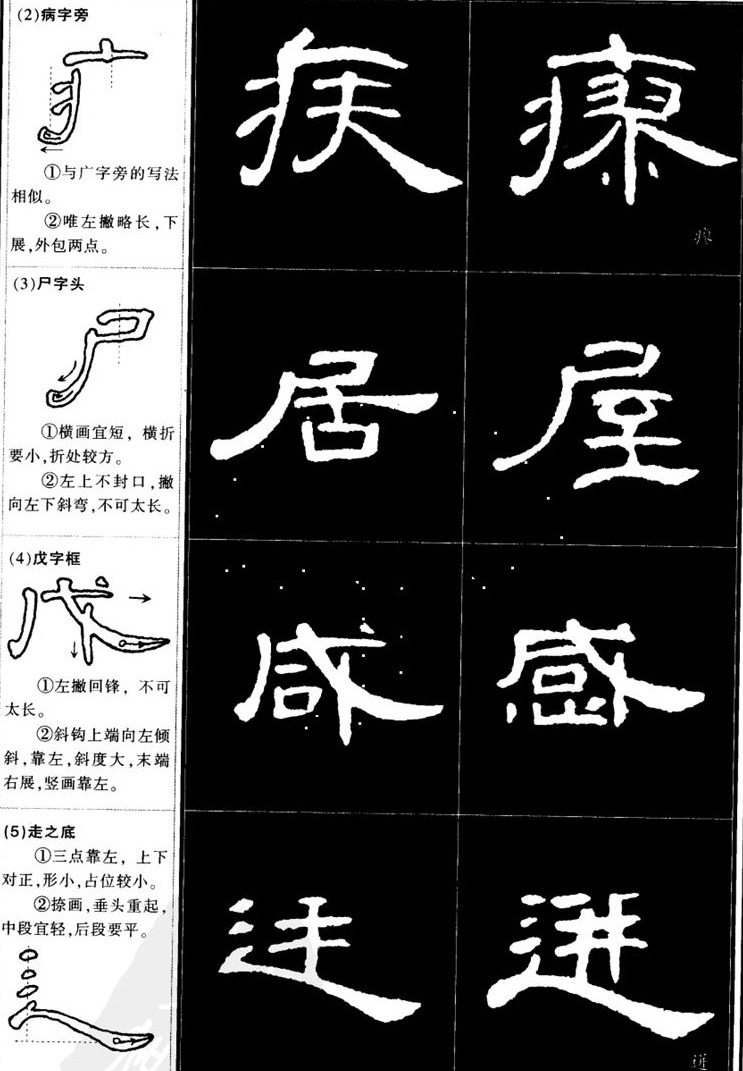 (2)病字旁
①与广字旁的写法
相似。
②唯左撇略长,下
展,外包两点。
疾
(3)尸字头
①横画宜短，横折
要小,折处较方。
②左上不封口,撇
向左下斜弯,不可太长。
居 屋
(4)戊字框
①左撇回锋，不可
太长。
②斜钩上端向左倾
斜,靠左,斜度大,末端
右展,竖画靠左。
咸 感
(5)走之底
①三点靠左，上下
对正,形小,占位较小。
②捺画,垂头重起,
中段宜轻,后段要平。